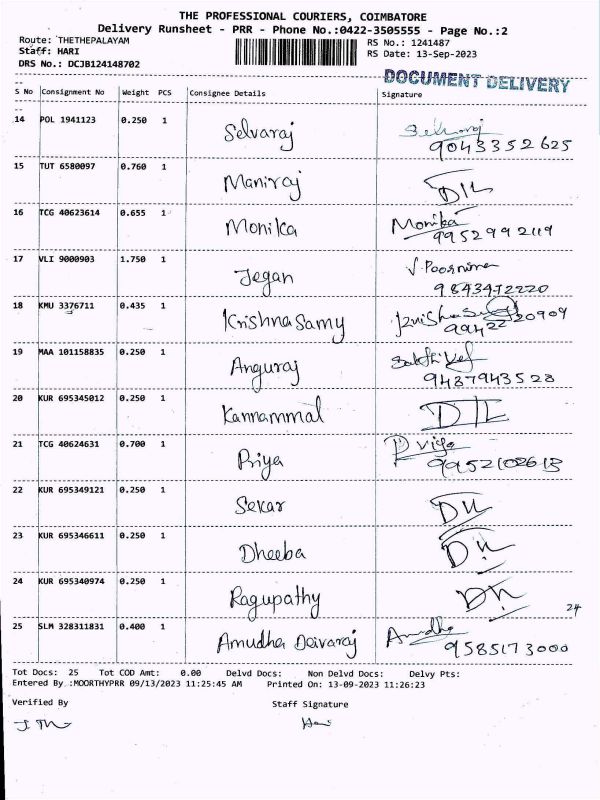 THE PROFESSIONAL COURIERS, COIMBATORE
Delivery Runsheet - PRR - Phone No.:0422-3505555 - Page No.:2
Route: THETHEPALAYAM RS No.: 1241487
Staff: HARI RS Date: 13-Sep-2023
DRS No.: DCJB124148702
DOCUMENT DELIVERY
S No Consignment No Weight PCS Consignee Details Signature
14 POL 1941123 0.250 1 Selvaraj
9043352625
15 TUT 6580097 0.760 1 Maniraj DIL
16 TCG 40623614 0.655 1 Monika Monika
9952992119
17 VLI 9000903 1.750 1 Jegan V. Poornima
9843472220
18 KMU 3376711 0.435 1 Krishna Samy
19 MAA 101158835 0.250 1 Anguraj
9487943528
20 KUR 695345012 0.250 1 Kannammal DIL
21 TCG 40624631 0.700 1 Priya Priya
22 KUR 695349121 0.250 1 Sekar
23 KUR 695346611 0.250 1 Dheeba
24 KUR 695340974 0.250 1 Ragupathy
24
25 SLM 328311831 0.400 1 Amudha Deivaraj Amudha
9585173000
Tot Docs: 25 Tot COD Amt: 0.00 Delvd Docs: Non Delvd Docs: Delvy Pts:
Entered By :MOORTHYPRR 09/13/2023 11:25:45 AM Printed On: 13-09-2023 11:26:23
Verified By Staff Signature
Hari